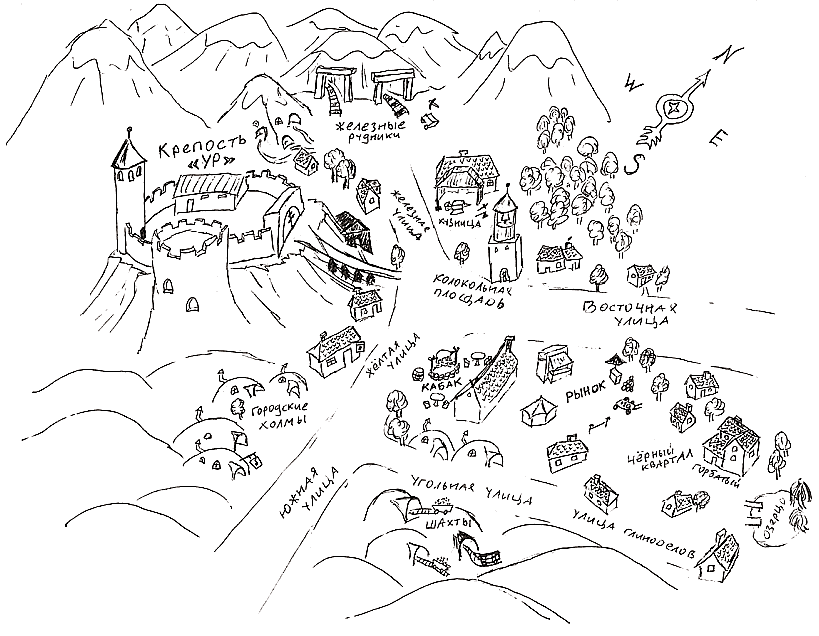 N
W
E
S
Железные
рудники
Крепость
«Ур»
Железная
улица
Кузница
Колокольная
площадь
Восточная
улица
Жёлтая
улица
Кабак
Рынок
Городские
холмы
Чёрный
квартал
Горбатый
Южная
улица
Угольная улица
Шахты
Улица глиноделов
Озерцо